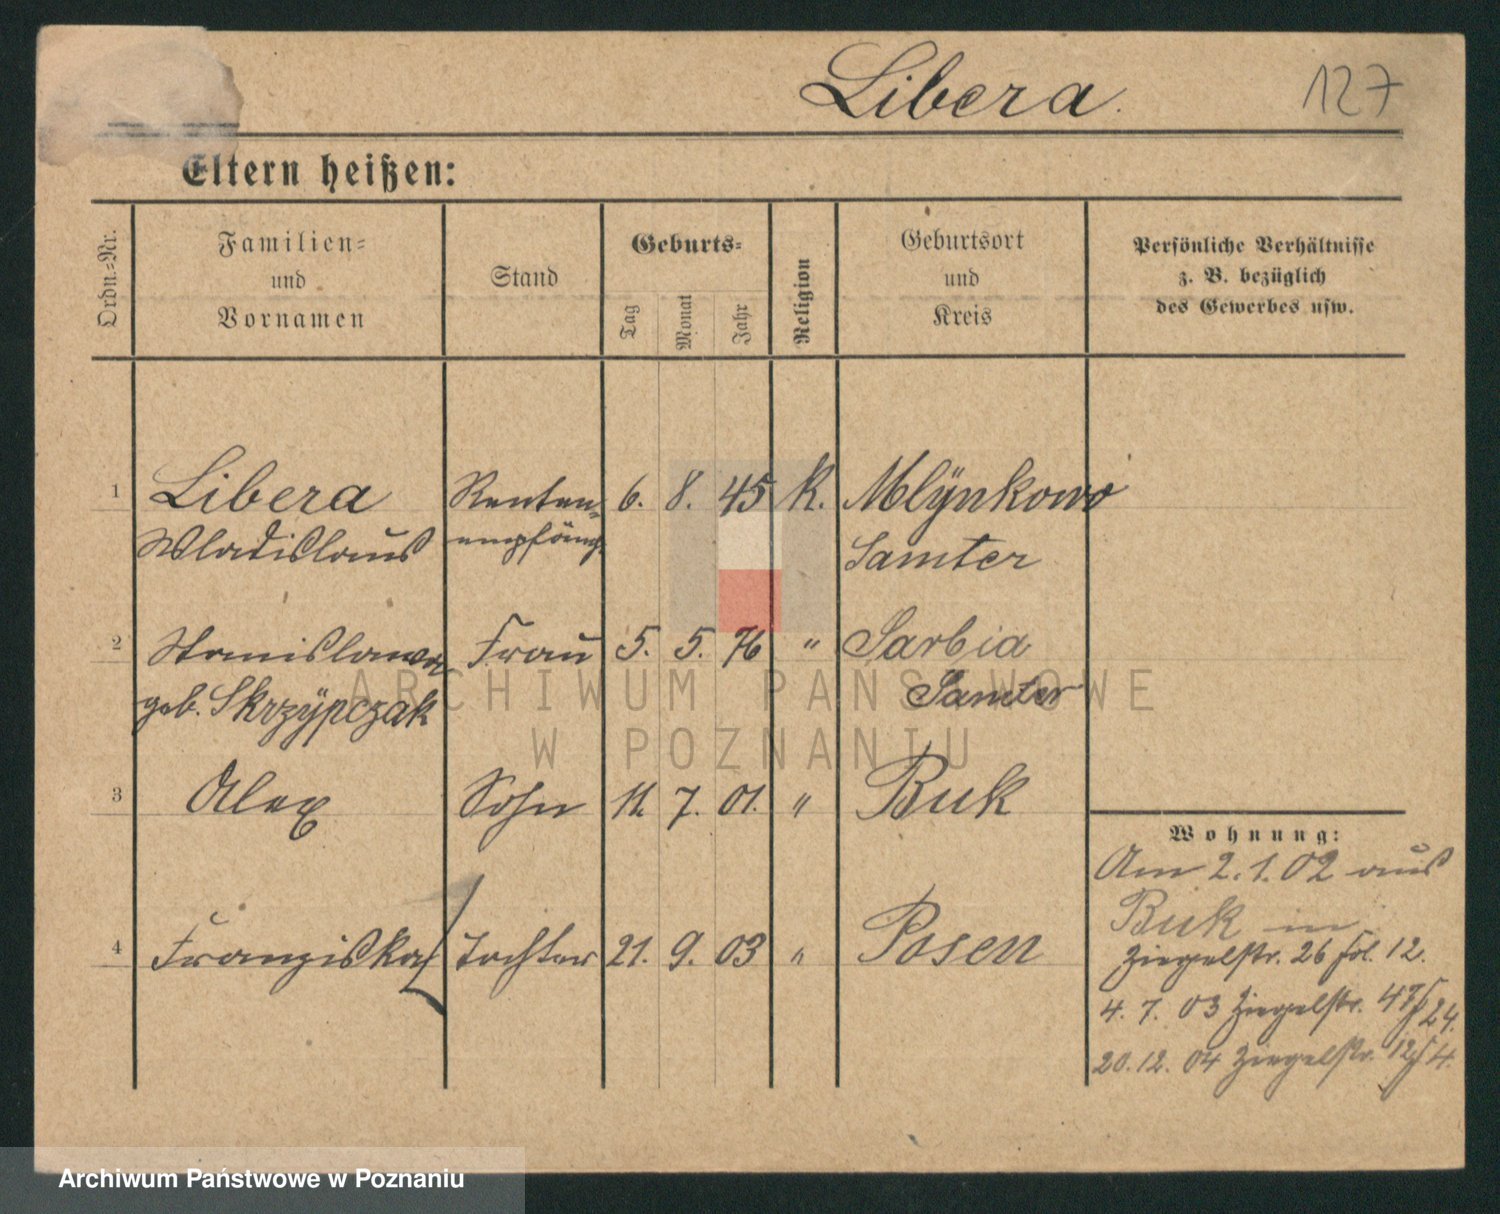 Libera.
127
Eltern heißen:
Ordn.=Nr.
Familien=
und
Vornamen
Stand
Geburts=
Tag
Monat
Jahr
Religion
Geburtsort
und
Kreis
Persönliche Verhältnisse
z. B. bezüglich
des Gewerbes usw.
1 Libera Renten= 6. 8. 45 K. Mlÿnkowo
Wladislaus empfäng. Samter
2 Stanislawa Frau 5. 5. 76 " Sarbia
geb. Skrzÿpczak Samter
ARCHIWUM PAŃSTWOWE
W POZNANIU
3 Alex Sohn 11. 7. 01. " Buk
4 Franziska Tochter 21. 9. 03 " Posen
Wohnung:
Am 2.1.02 aus
Buk in
Ziegelstr. 26 fol. 12.
4. 7. 03 Ziegelstr. 24.
20.12. 04 Ziegelstr. 12/4.
Archiwum Państwowe w Poznaniu